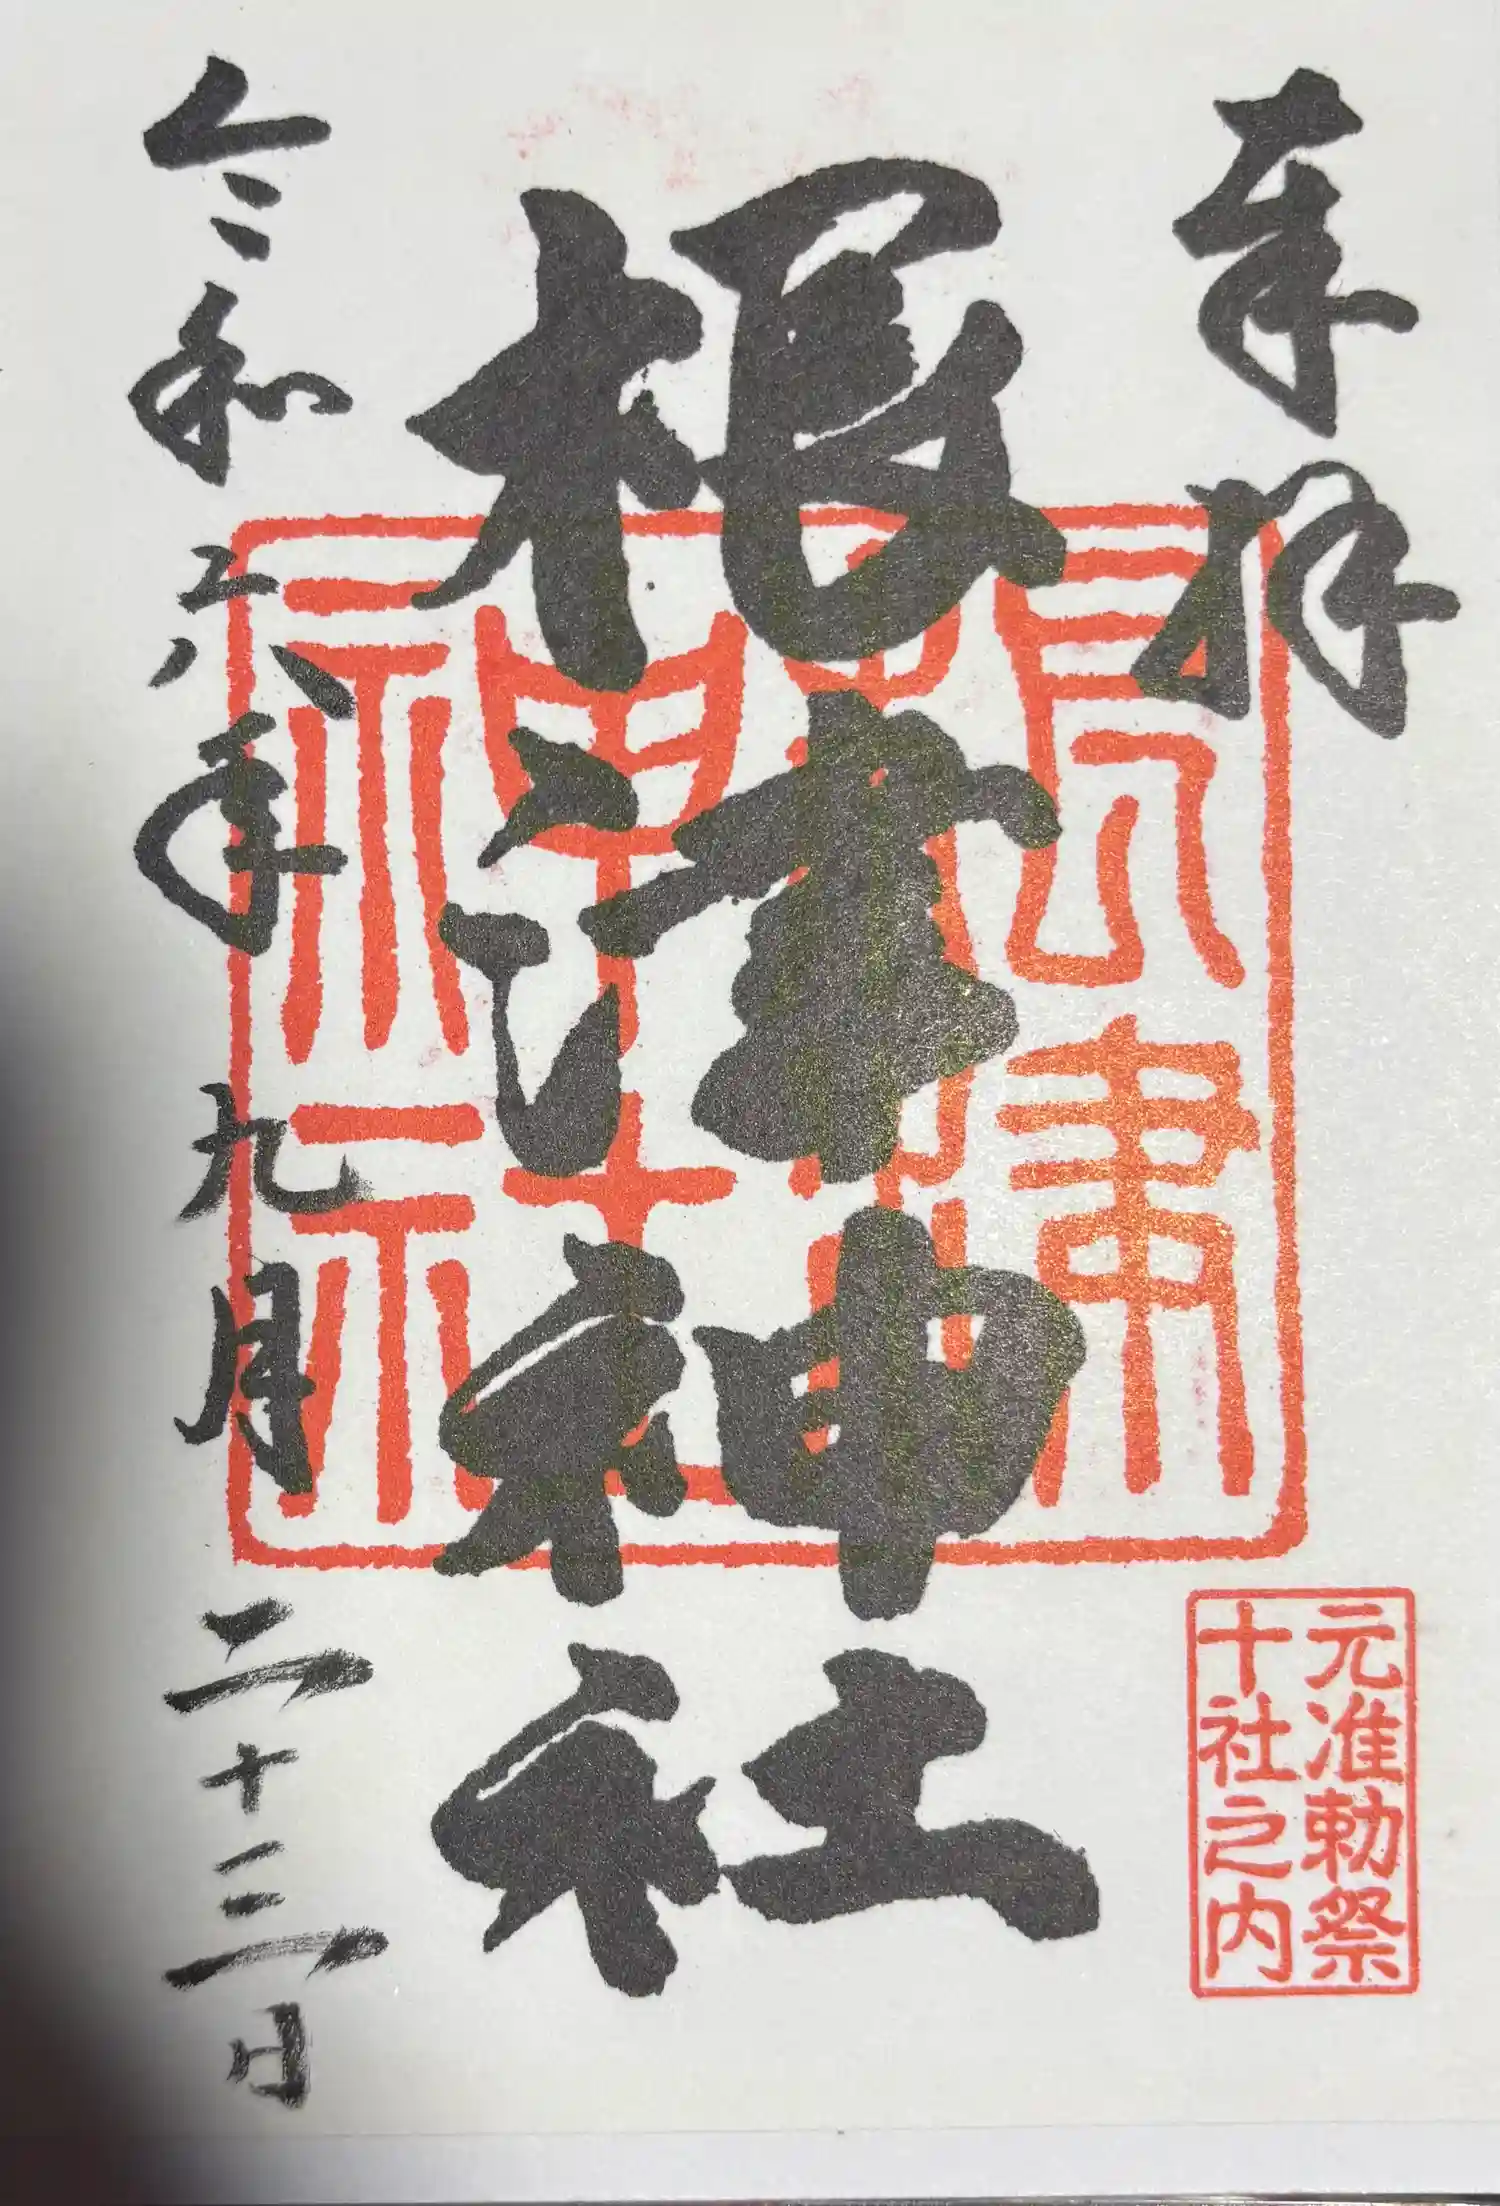 奉拝
元准勅祭
十社之内
根津神社
令和六年九月二十三日